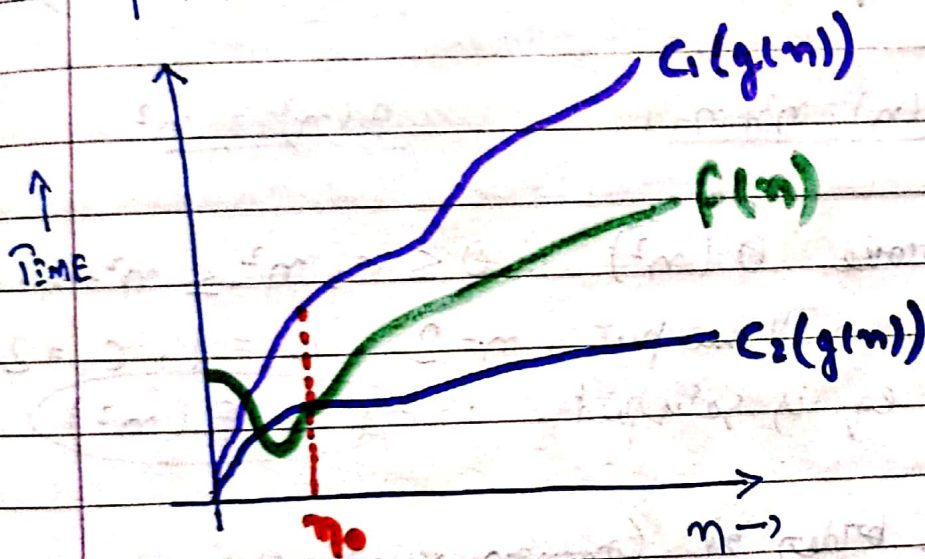 C₁(g(n))
f(n)
↑
TIME
C₂(g(n))
n₀
n →